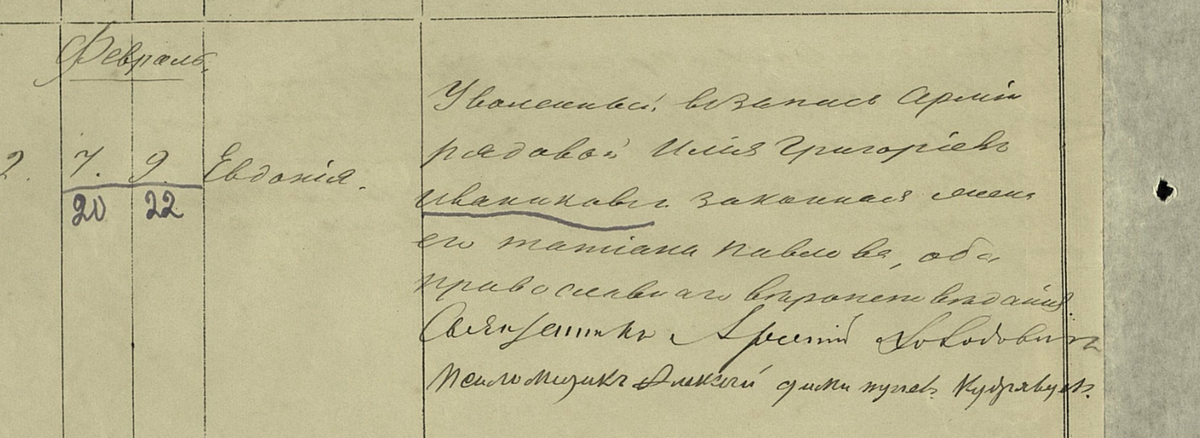 Февраль.
2. 7. 9. Евдокія.
20 22
Уволенный въ запасъ Арміи
рядовой Илія Григоріевъ
Иваниковъ законная жена
его Татіана Павлова, оба
православнаго вѣроисповѣданія
Священникъ Арсеній
Псаломщикъ Алексѣй Кудрявцевъ.